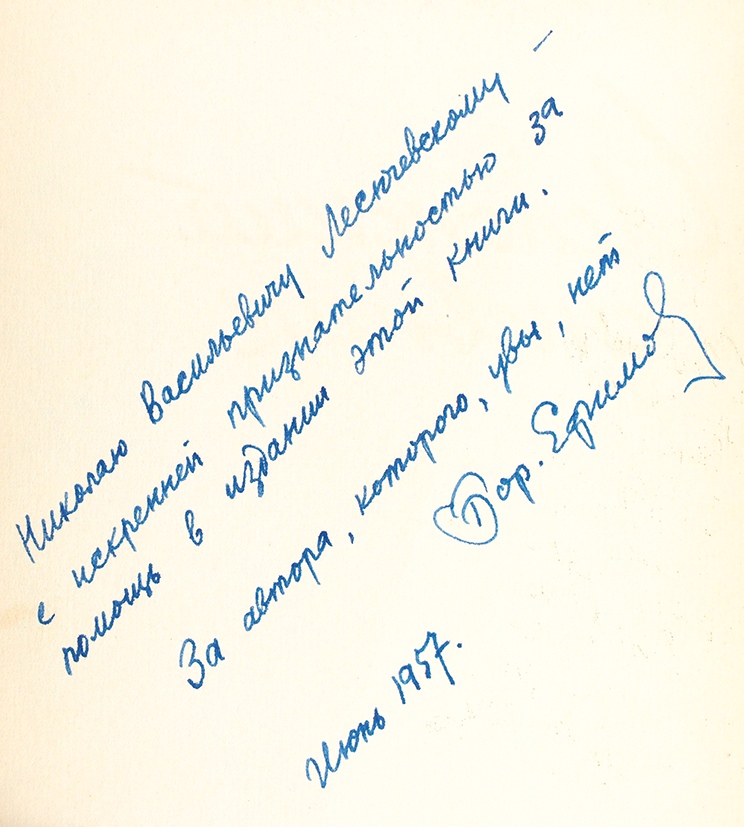 Николаю Васильевичу Лесючевскому –
с искренней признательностью за
помощь в издании этой книги.
За автора, которого, увы, нет
Бор. Ефимов
Июнь 1957.